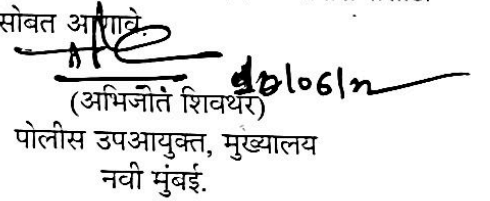 सोबत आणावे.
(अभिजीत शिवथरे)
पोलीस उपआयुक्त, मुख्यालय
नवी मुंबई.